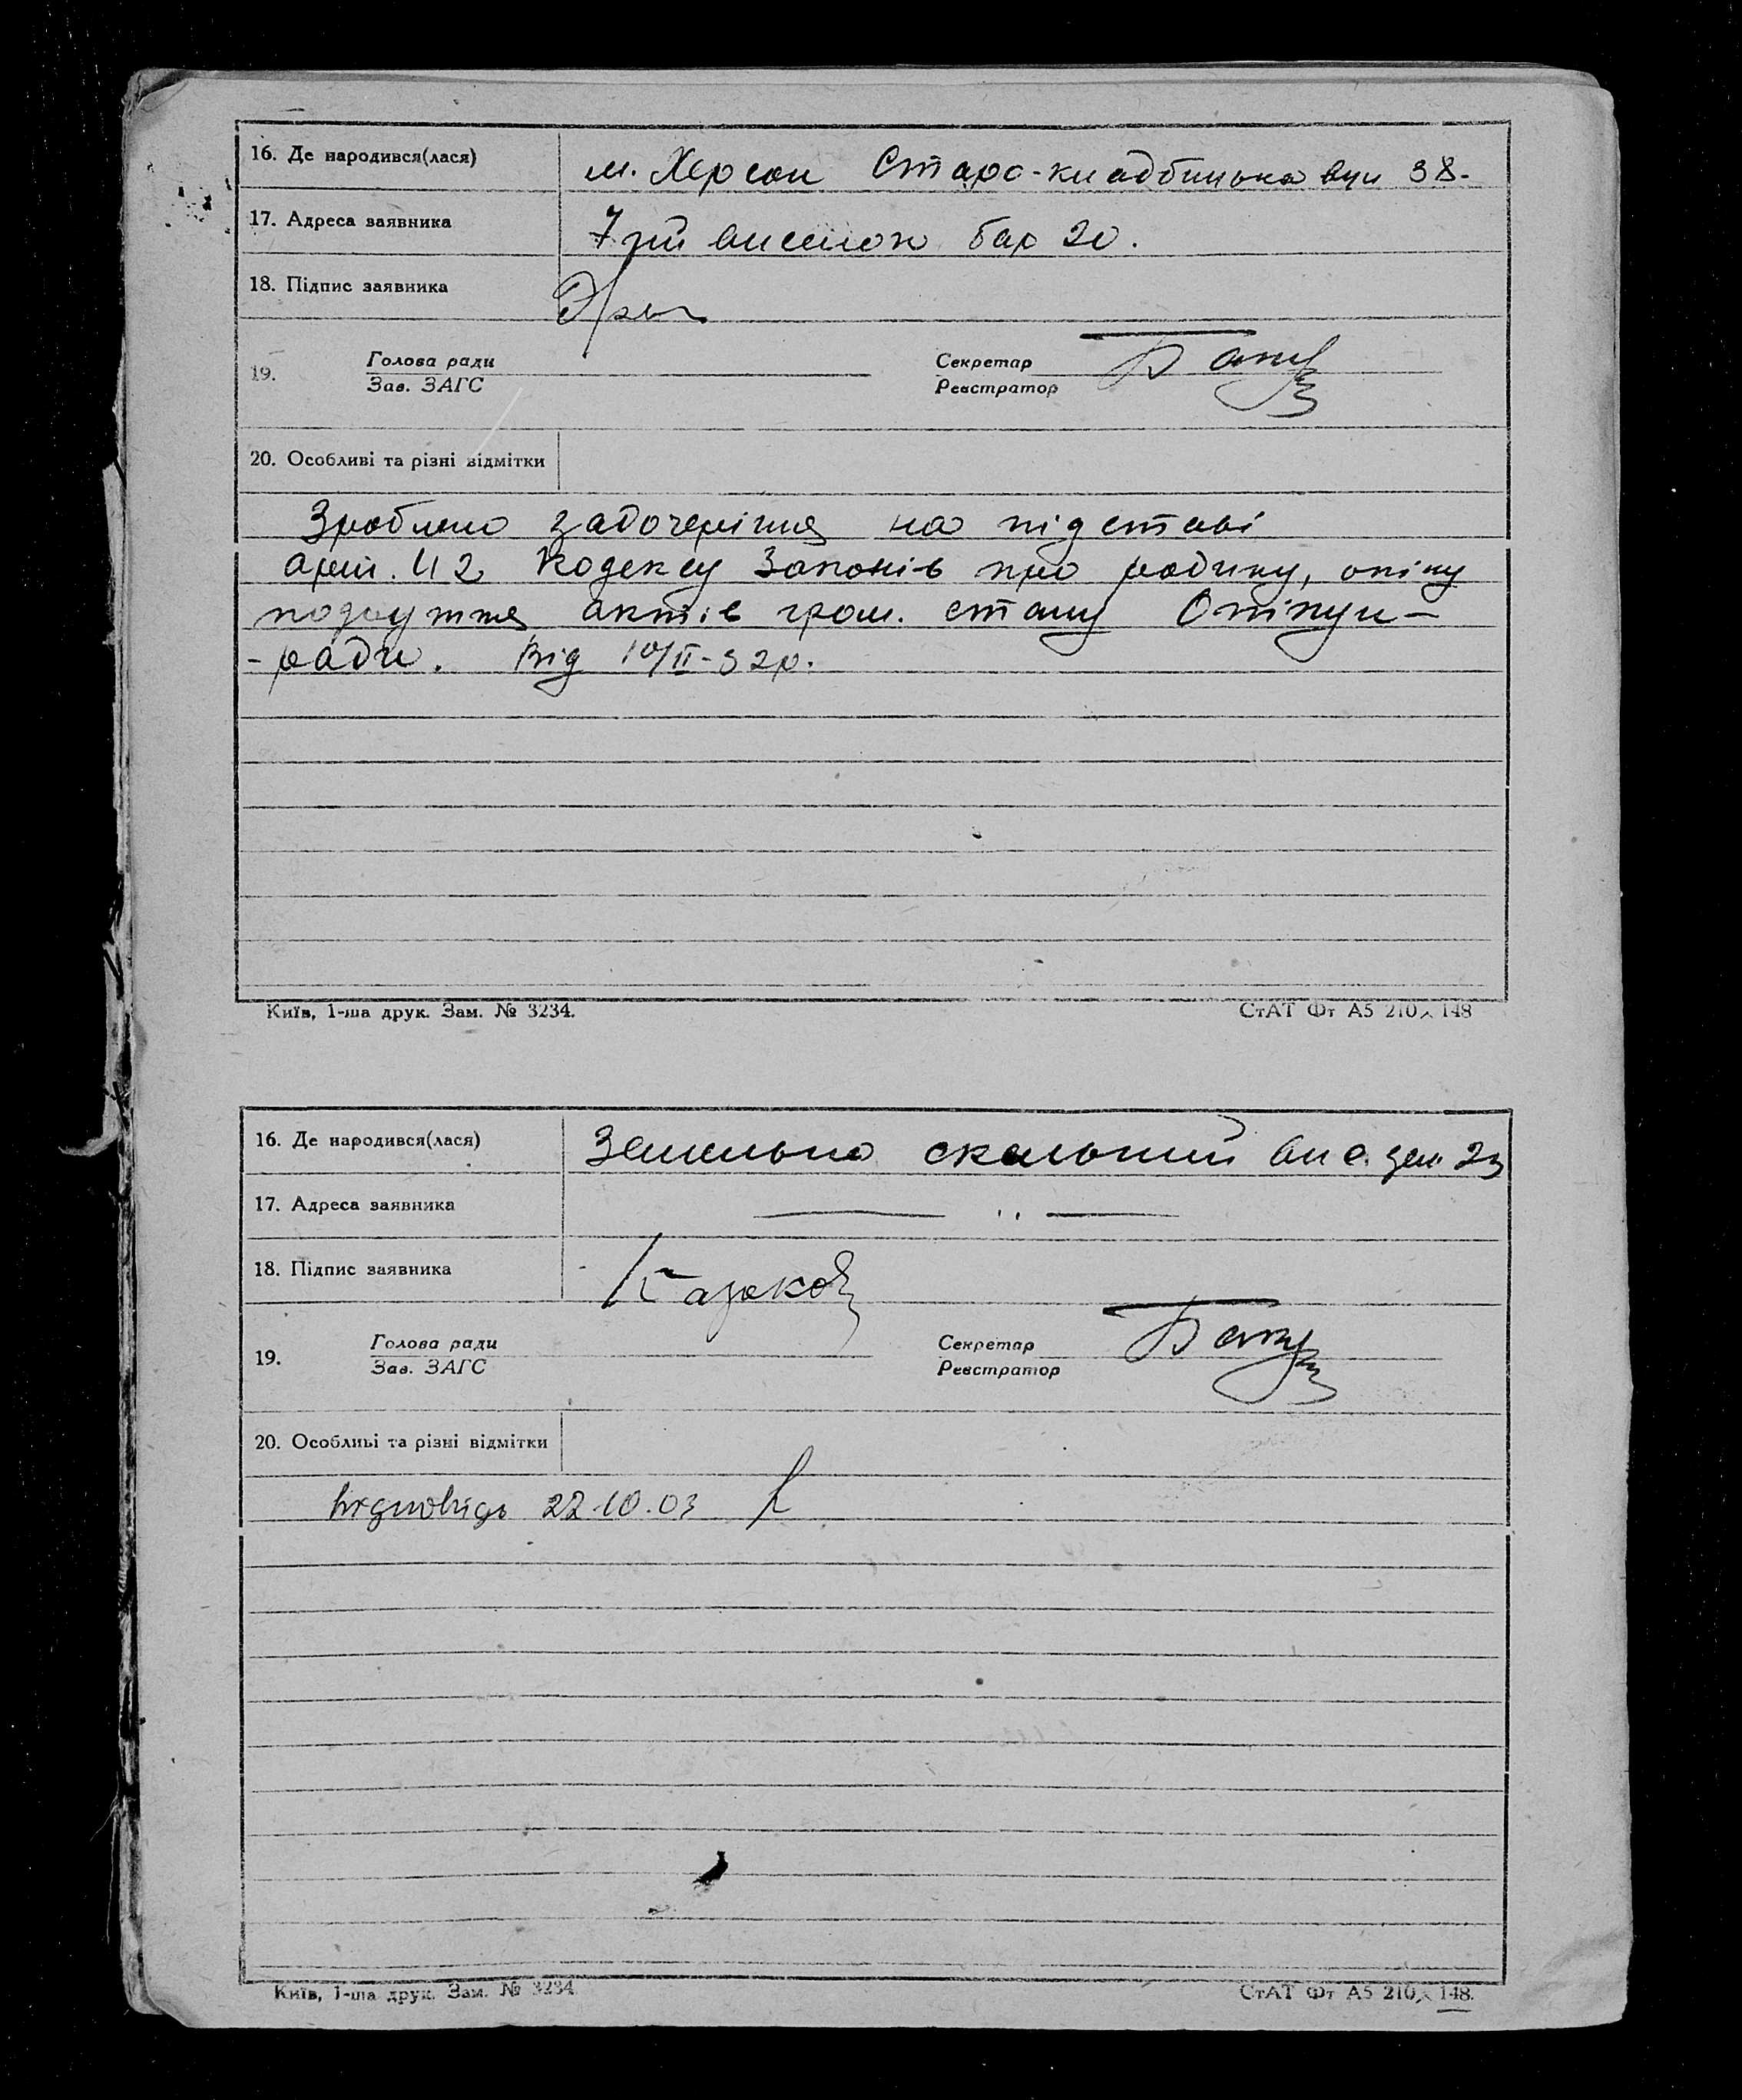 16. Де народився(лася) м. Херсон Старо-кладбицька вул 38.
17. Адреса заявника 7мй виселок бар 20.
18. Підпис заявника
Голова ради Секретар
19. Зав. ЗАГС Реєстратор
20. Особливі та різні відмітки
Зроблено задочеріння на підставі
арт. 42 Кодексу Законів про родину, опіку
подружжя актів гром. стану Опікун-
-ради. Від 10/II-32р.
Київ, 1-ша друк. Зам. № 3234. СтАТ Фт А5 210 × 148
16. Де народився(лася) Земельно скельний вис. зем 23
17. Адреса заявника —— '' ——
18. Підпис заявника Казаков
Голова ради Секретар
19. Зав. ЗАГС Реєстратор
20. Особливі та різні відмітки
22.10.03
Київ, 1-ша друк. Зам. № 3234 СтАТ Фт А5 210 × 148.